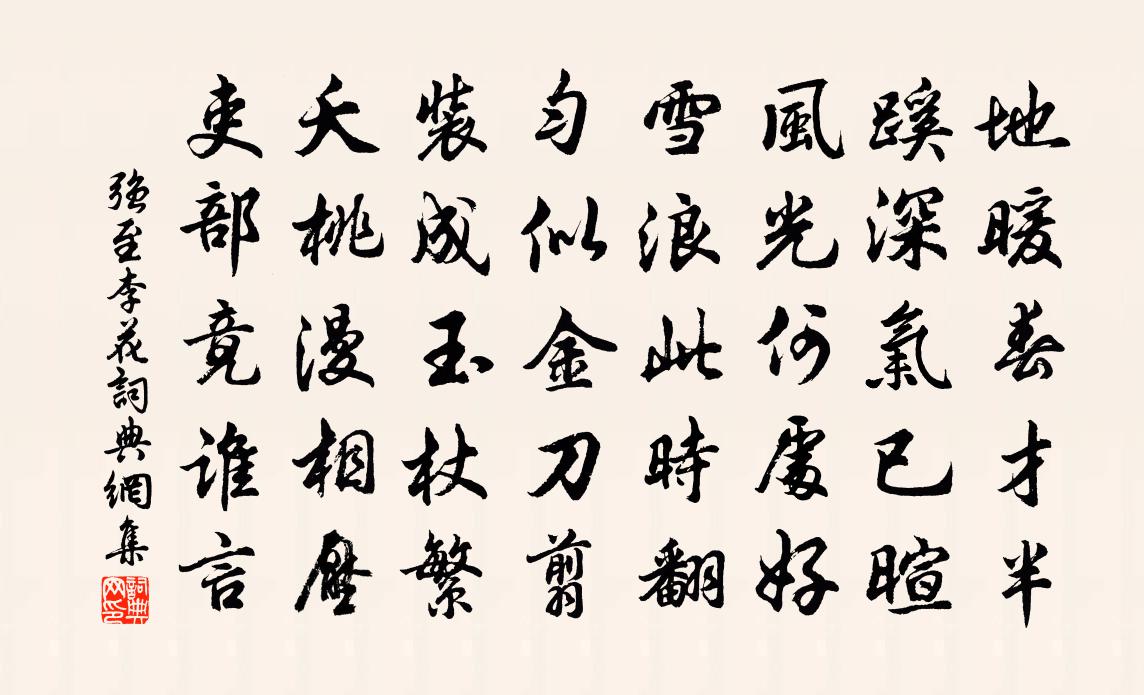 地暖春才半
蹊深氣已暄
風光何處好
雪浪此時翻
勻似金刀翦
裝成玉杖繁
夭桃漫相壓
吏部竟誰言
強至李花詞典網集
詞典网印